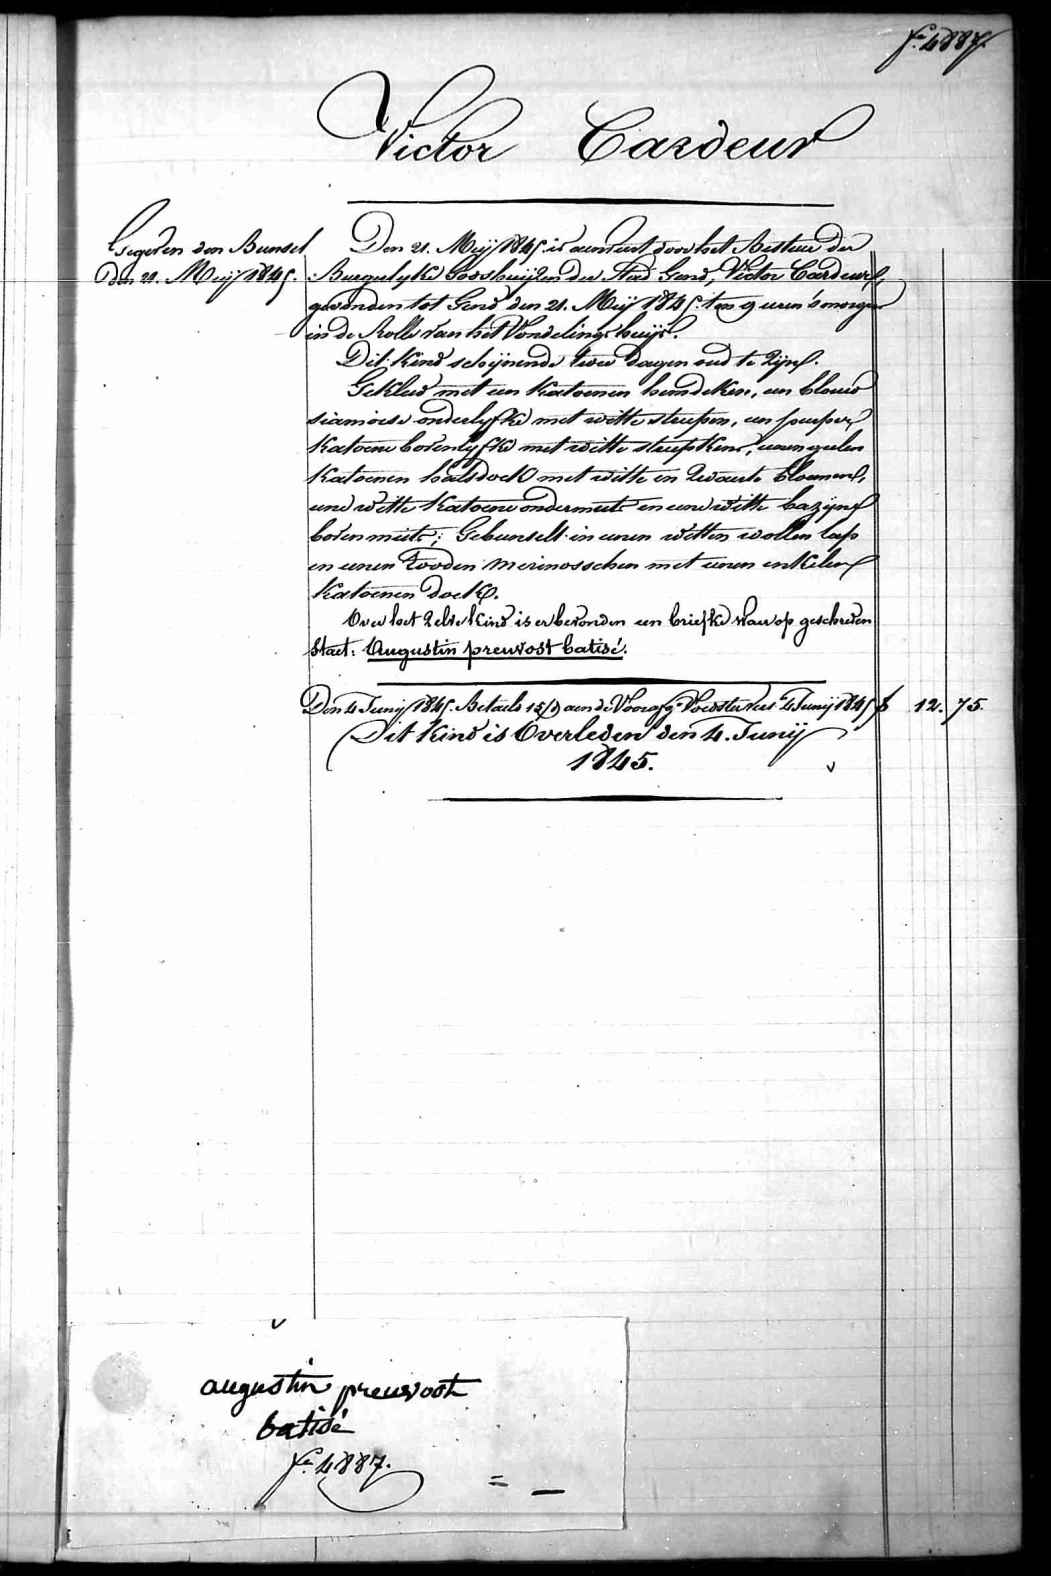 f.º 4887.
Victor Cardeur
Gegeven den Bunsel
den 21. Meij 1845.
Den 21. Meij 1845. is aenveirt door het Bestuer der
Burgerlyke Godshuijzen der Stad Gend, Victor Cardeur,
gevonden tot Gend den 21. Meij 1845. ten 9 uren 's morgens
in de Rolle van het Vondelingshuijs.
Dit kind schijnende twee dagen oud te zijn.
Gekleed met een katoenen hemdeken, een blauw
siamoise onderlyfke met witte streepen, een purper
katoene bovenlyfke met witte streepkens, eenen geelen
katoenen halsdoek met witte en zwarte bloemen,
eene witte katoene ondermuts en eene witte bazijne
bovenmuts; Gebunselt in eenen witten wollen lap
en eenen rooden merinosschen met eenen enkelen
katoenen doek.
Over het zelve kind is er bevonden een briefke waer op geschreven
staet: Augustin preuvost batisé.
Den 4 Junij 1845. Betaeld 15/d aen de Voedster tot 4 Junij 1845 f 12. 75.
Dit kind is Overleden den 4. Junij
1845.
augustin preuvost
batisé
f.º 4887.